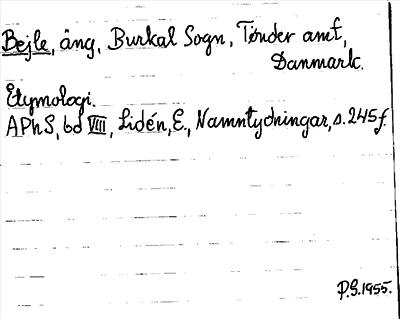 Bejle, äng, Burkal Sogn, Tønder amt,
Danmark.
Etymologi.
APhS, bd VIII, Lidén, E., Namntydningar, s. 245 f.
P.G. 1955.